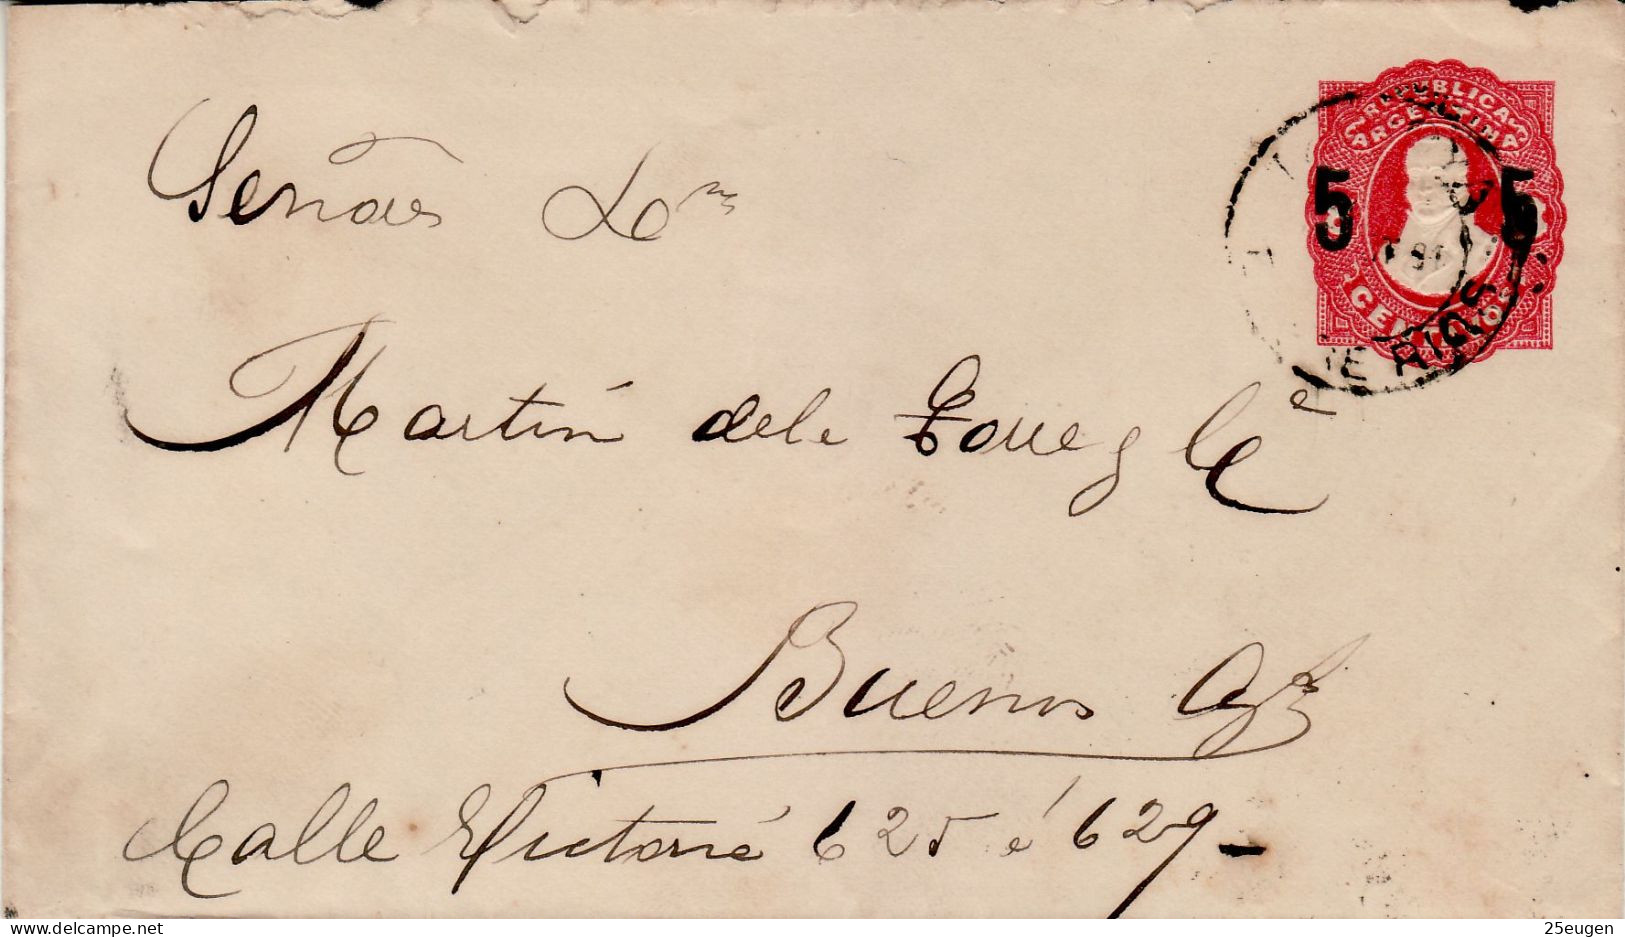 REPUBLICA
ARGENTINA
5 5
CENTAVOS
E RIOS
Señores
Martin de la Torre y Cª
Buenos Ays
Calle Victoria 625 á 629 -
delcampe.net
25eugen